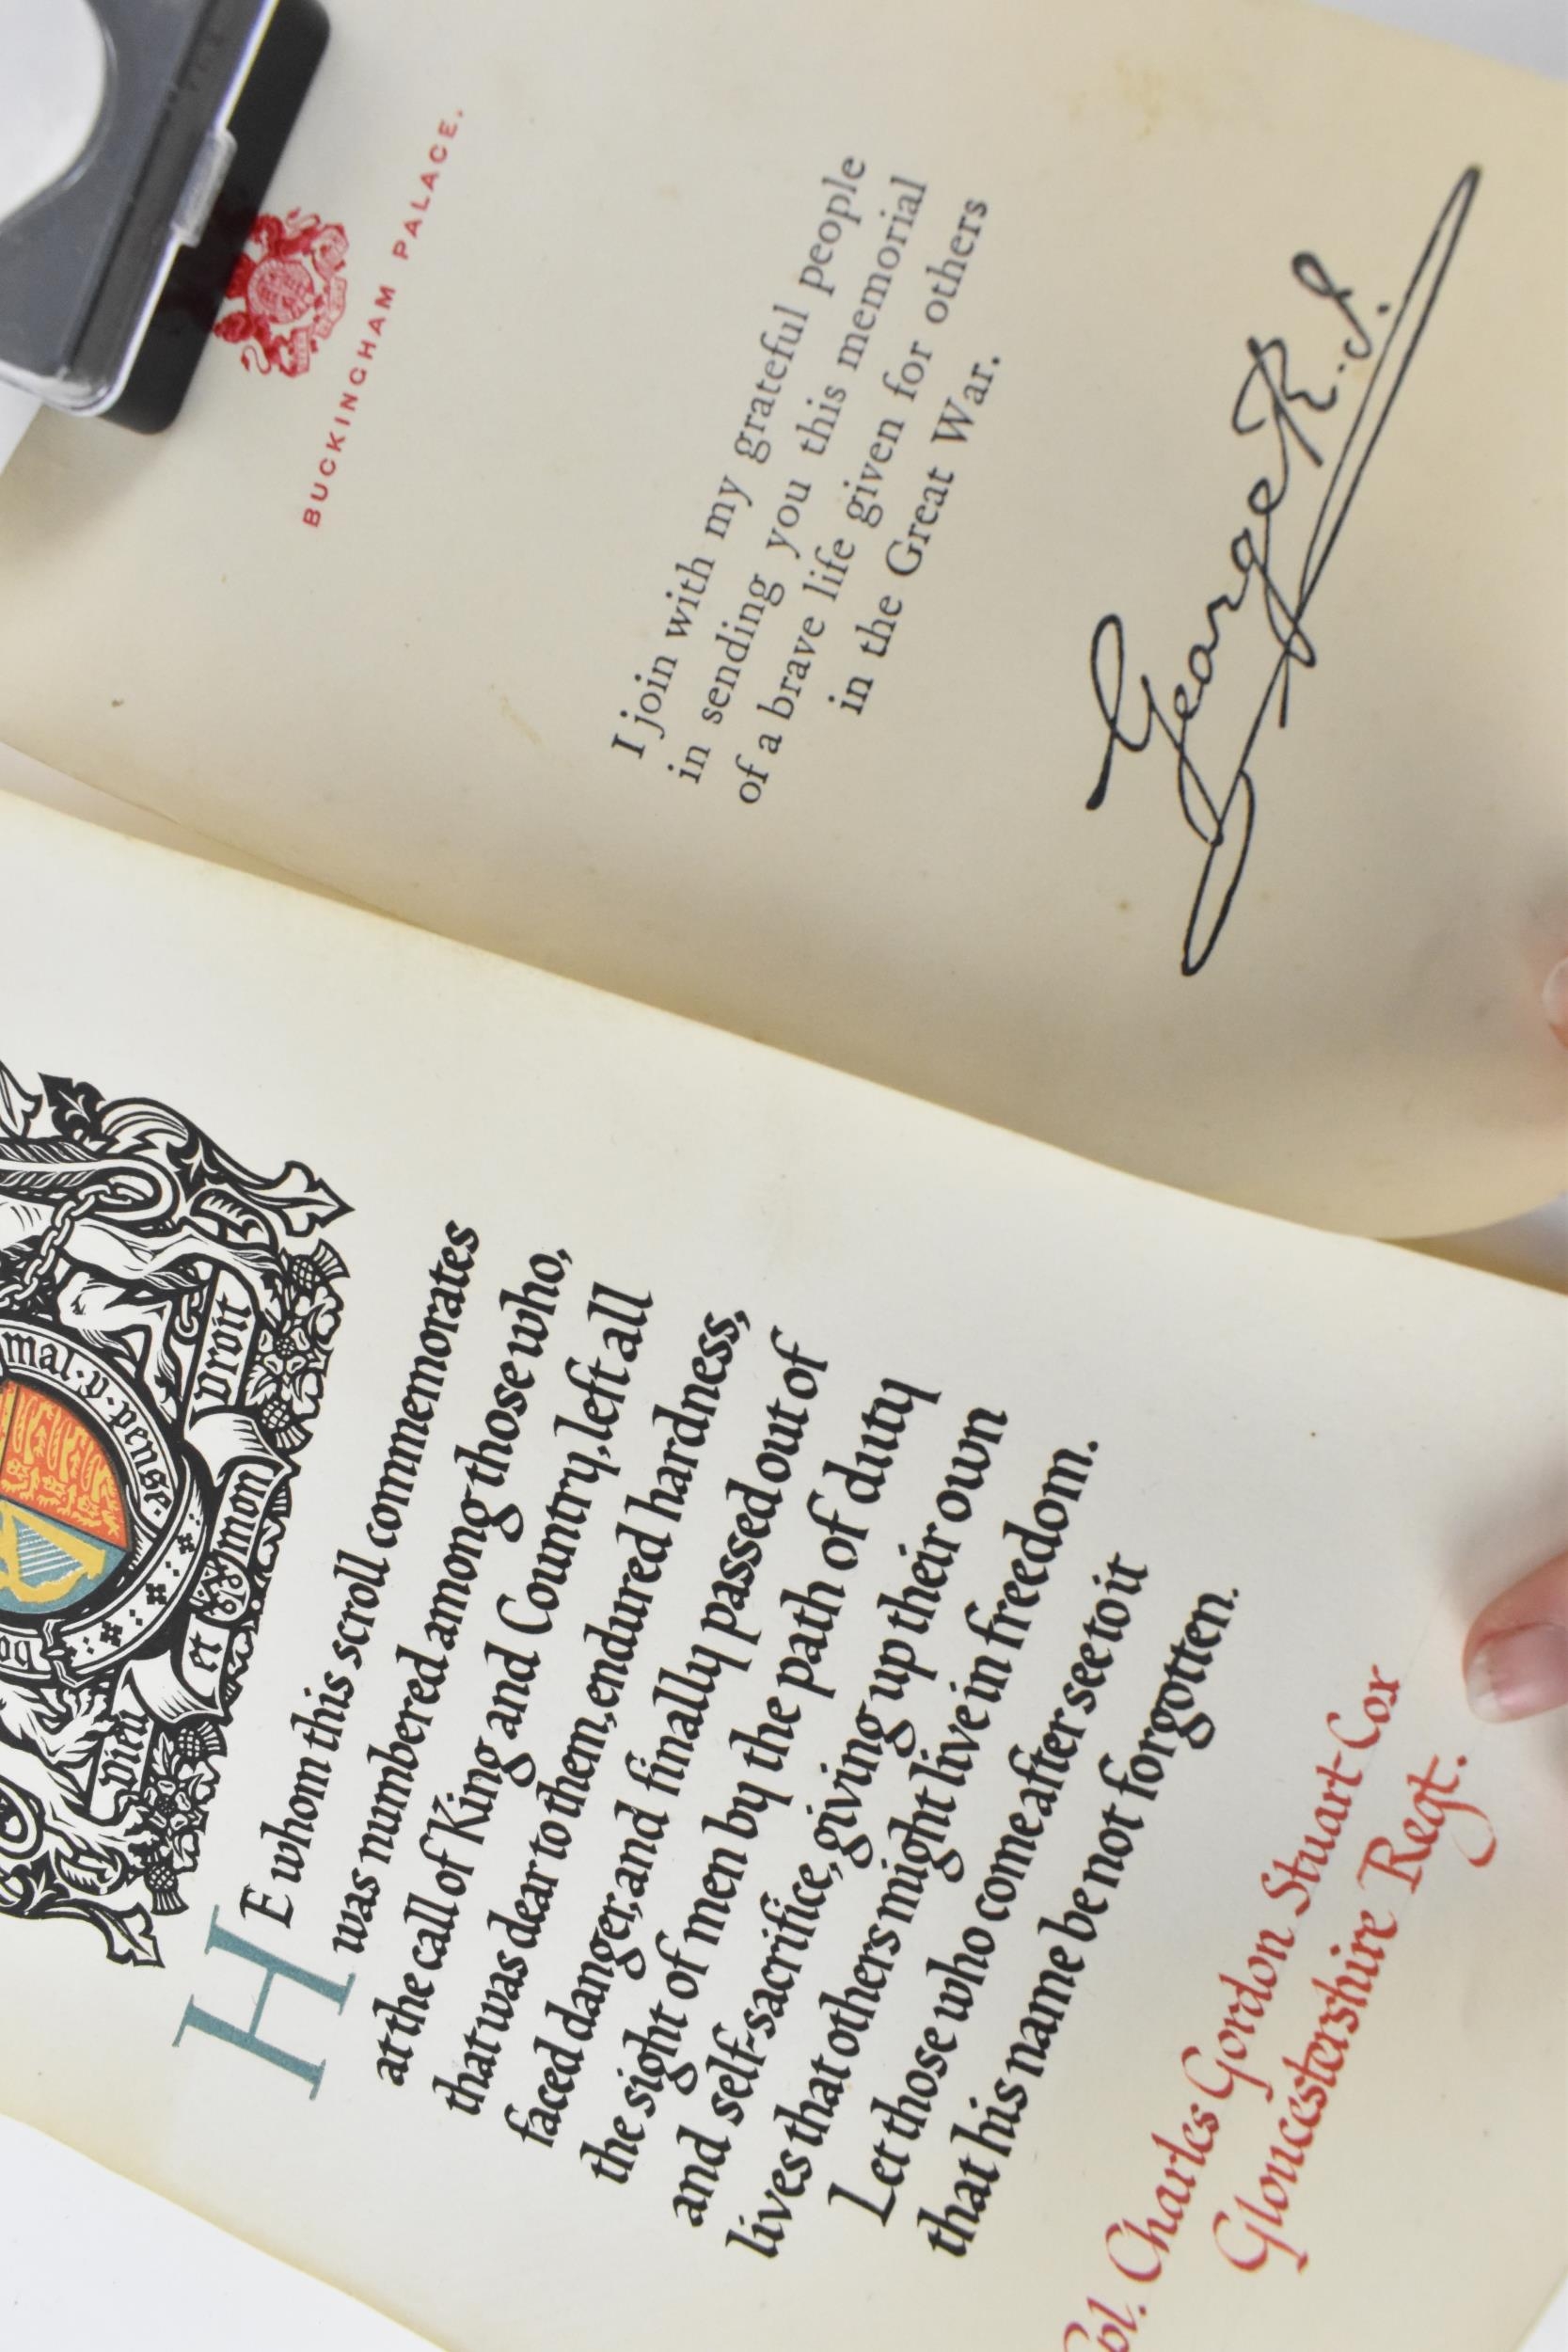 BUCKINGHAM PALACE.
I join with my grateful people
in sending you this memorial
of a brave life given for others
in the Great War.
George R.I.
mal·y·pense
Dieu et mon Droit
HE whom this scroll commemorates
was numbered among those who,
at the call of King and Country, left all
that was dear to them, endured hardness,
faced danger, and finally passed out of
the sight of men by the path of duty
and self-sacrifice, giving up their own
lives that others might live in freedom.
Let those who come after see to it
that his name be not forgotten.
Col. Charles Gordon Stuart-Cor
Gloucestershire Regt.